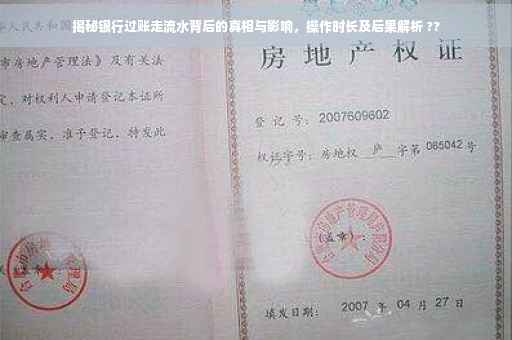 揭秘银行过账走流水背后的真相与影响，操作时长及后果解析 ??
华人民共和国
市房地产管理法》及有关法
定，对权利人申请登记本证所
审查属实，准予登记，特发此
房地产权证
登 记 号：2007609602
权证字号：房地权 庐 字第 085042 号
房地产管理局
(盖章)：
填发日期： 2007 年 04 月 27 日